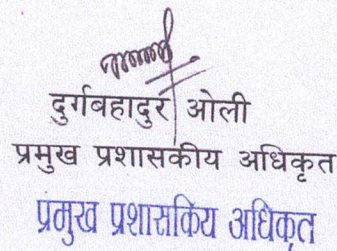 दुर्गबहादुर ओली
प्रमुख प्रशासकीय अधिकृत
प्रमुख प्रशासकिय अधिकृत